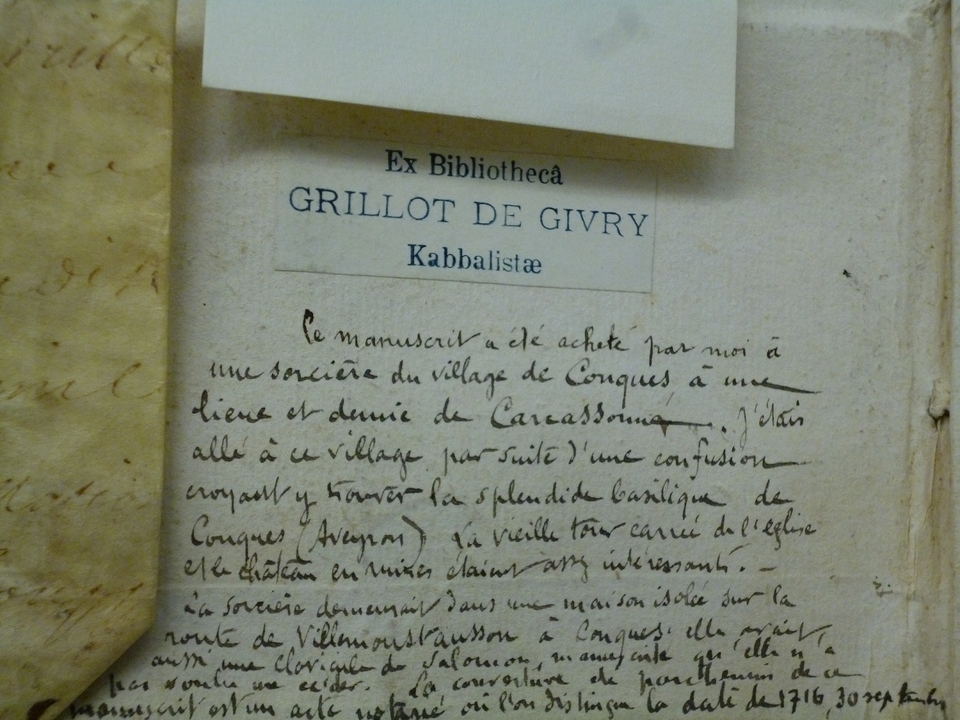 Ex Bibliothecâ
GRILLOT DE GIVRY
Kabbalistæ
Ce manuscrit a été acheté par moi à
une sorcière du village de Conques à une
lieue et demie de Carcassonne. J'étais
allé à ce village par suite d'une confusion
croyant y trouver la splendide basilique de
Conques (Aveyron) La vieille tour carrée de l'église
et le château en ruines étaient assez intéressants. –
La sorcière demeurait dans une maison isolée sur la
route de Villemoustaussou à Conques; elle avait,
aussi une clavicule de Salomon, manuscrite qu'elle n'a
pas voulu me céder. La couverture de parchemin de ce
manuscrit est un acte notarié où l'on distingue la date de 1716, 30 septembre